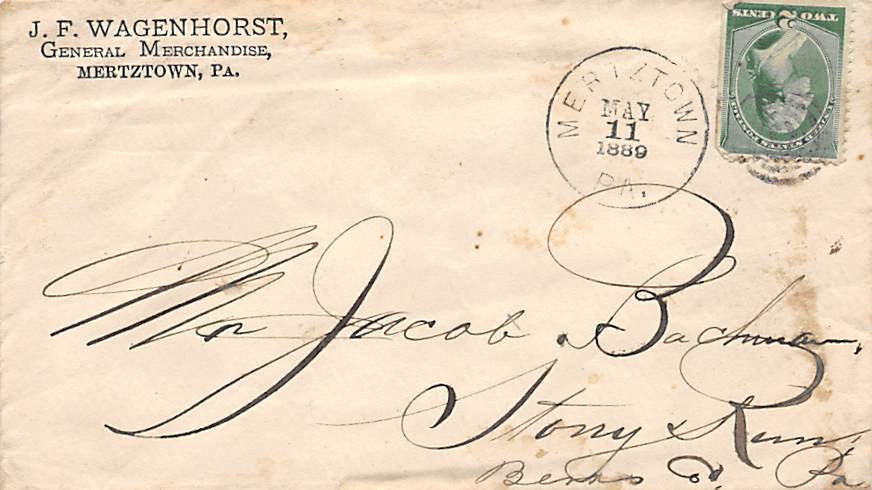 J. F. WAGENHORST,
GENERAL MERCHANDISE,
MERTZTOWN, PA.
MERTZTOWN
MAY
11
1889
PA.
2
TWO CENTS
UNITED STATES POSTAGE
Mr Jacob Bachman,
Stony Run,
Berks Co. Pa